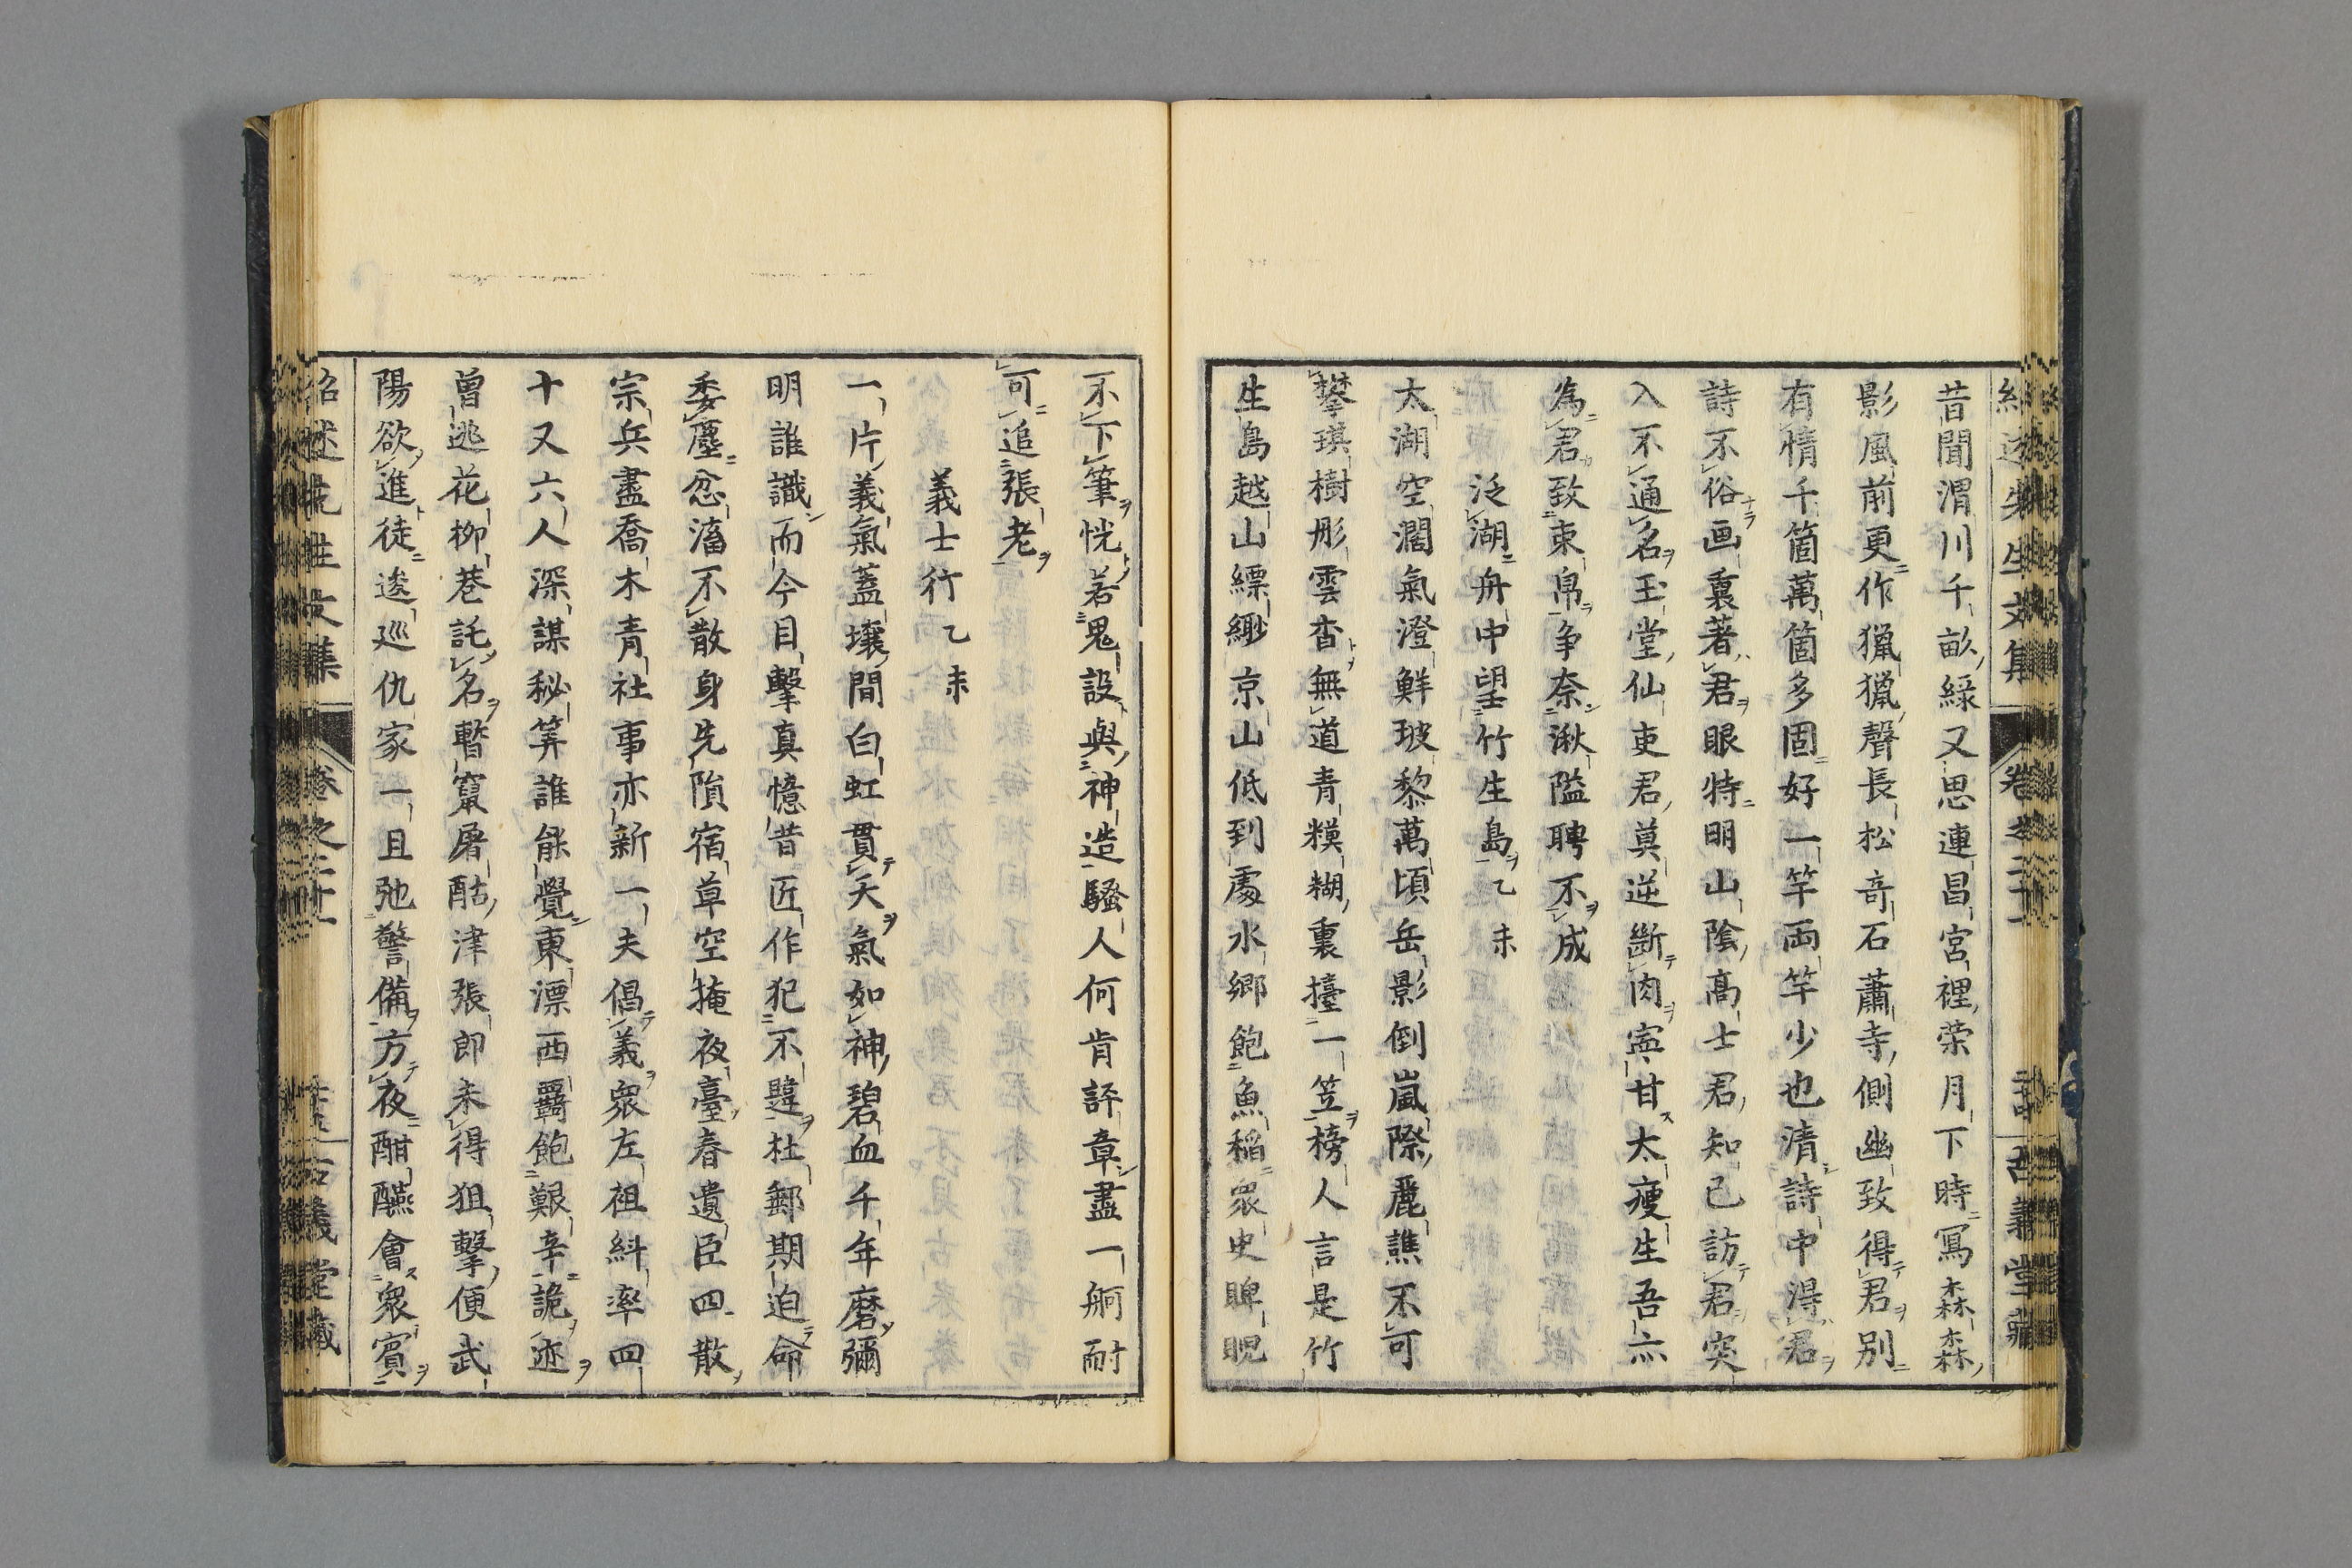 昔聞渭川千畝綠又思連昌宮裡荣月下時寫森森
影風前更作獵獵聲長松竒石蕭寺側幽致得君別
有情千箇萬箇多固好一竿両竿少也清詩中淂君
詩不俗画裏著君眼特明山陰高士君知己訪君突
入不通名玉堂仙吏君莫逆斷肉寧甘太瘦生吾亦
為君致束帛争奈湫隘聘不成
泛湖舟中望竹生島乙未
太湖空濶氣澄鮮玻黎萬頃岳影倒嵐際麁譙不可
攀琪樹彤雲杳無道青糢糊裏擡一笠榜人言是竹
生島越山縹緲京山低到處水郷飽魚稲眾史睥睨
不下筆恍若鬼設與神造騷人何肯評章盡一舸耐
可追張老
義士行乙未
一片義氣蓋壤間白虹貫天氣如神碧血千年磨彌
明誰識而今目擊真憶昔匠作犯不韙杜郵期迫命
委塵忿滀不散身先隕宿草空掩夜臺春遺臣四散
宗兵盡喬木青社事亦新一夫倡義眾左袒糾率四
十又六人深謀秘筭誰能覺東漂西羇飽艱辛詭迹
曾逃花柳巷託名暫竄屠酤津張郎未得狙擊便武
陽欲進徒逡巡仇家一旦弛警備方夜酣醼會眾賓
紹述先生文集 卷之二十一 古義堂藏